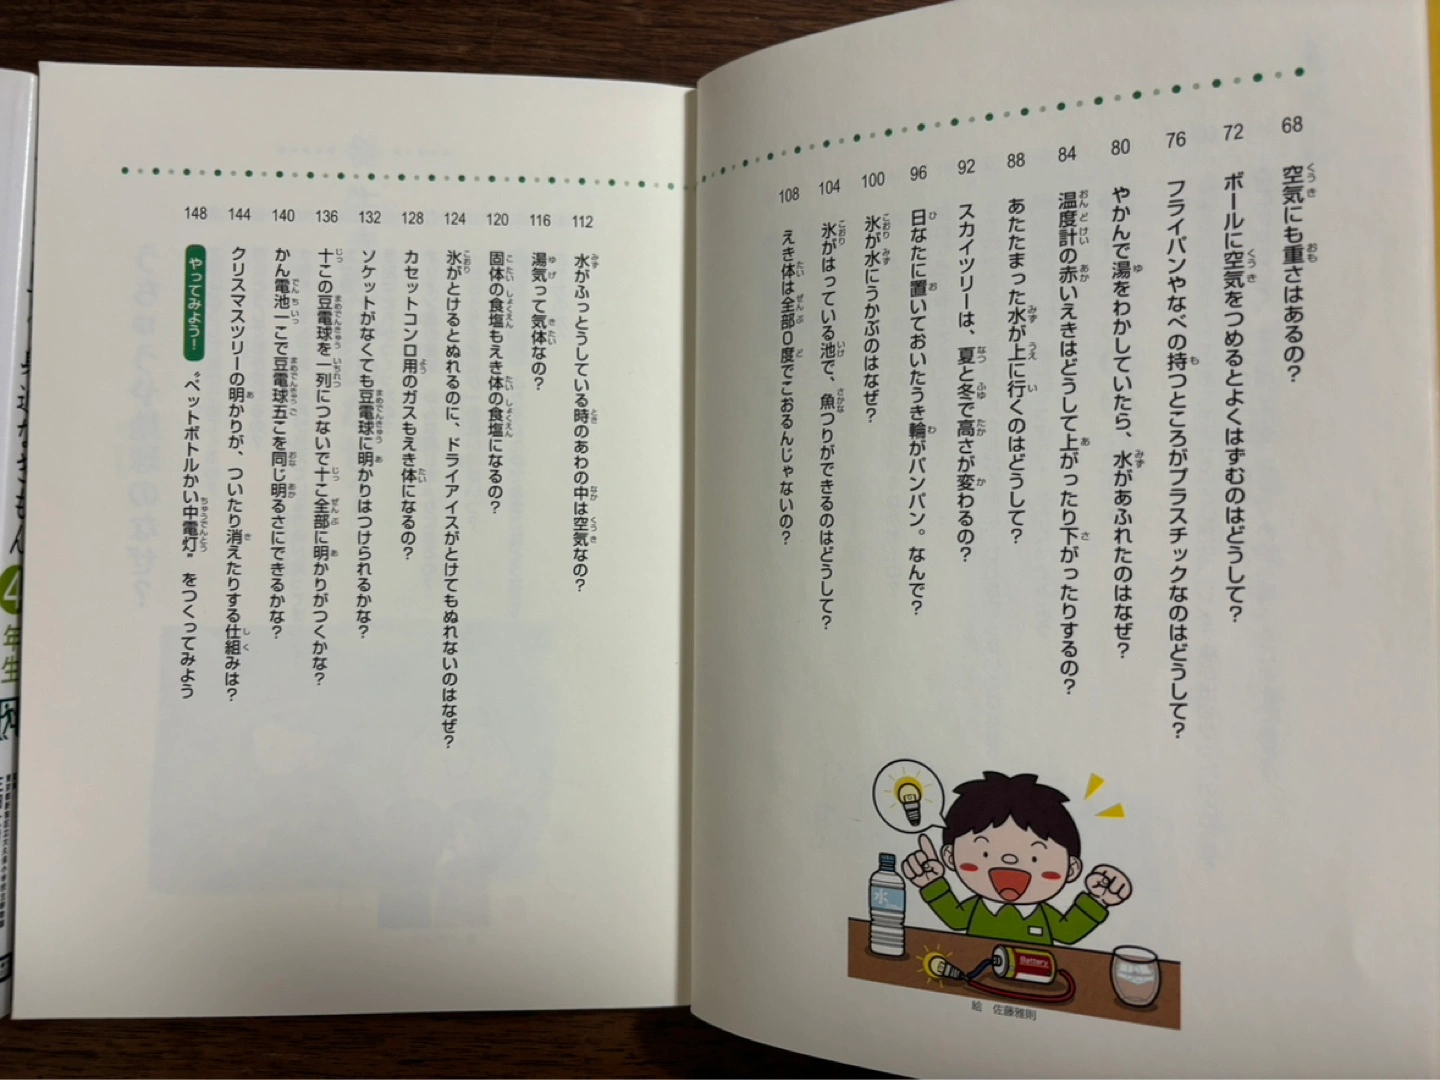 68 空気にも重さはあるの?
72 ボールに空気をつめるとよくはずむのはどうして?
76 フライパンやなべの持つところがプラスチックなのはどうして?
80 やかんで湯をわかしていたら、水があふれたのはなぜ?
84 温度計の赤いえきはどうして上がったり下がったりするの?
88 あたたまった水が上に行くのはどうして?
92 スカイツリーは、夏と冬で高さが変わるの?
96 日なたに置いておいたうき輪がパンパン。なんで?
100 氷が水にうかぶのはなぜ?
104 氷がはっている池で、魚つりができるのはどうして?
108 えき体は全部0度でこおるんじゃないの?
水
Battery
絵 佐藤雅則
112 水がふっとうしている時のあわの中は空気なの?
116 湯気って気体なの?
120 固体の食塩もえき体の食塩になるの?
124 氷がとけるとぬれるのに、ドライアイスがとけてもぬれないのはなぜ?
128 カセットコンロ用のガスもえき体になるの?
132 ソケットがなくても豆電球に明かりはつけられるかな?
136 十この豆電球を一列につないで十こ全部に明かりがつくかな?
140 かん電池一こで豆電球五こを同じ明るさにできるかな?
144 クリスマスツリーの明かりが、ついたり消えたりする仕組みは?
148 やってみよう! “ペットボトルかい中電灯” をつくってみよう
4年生